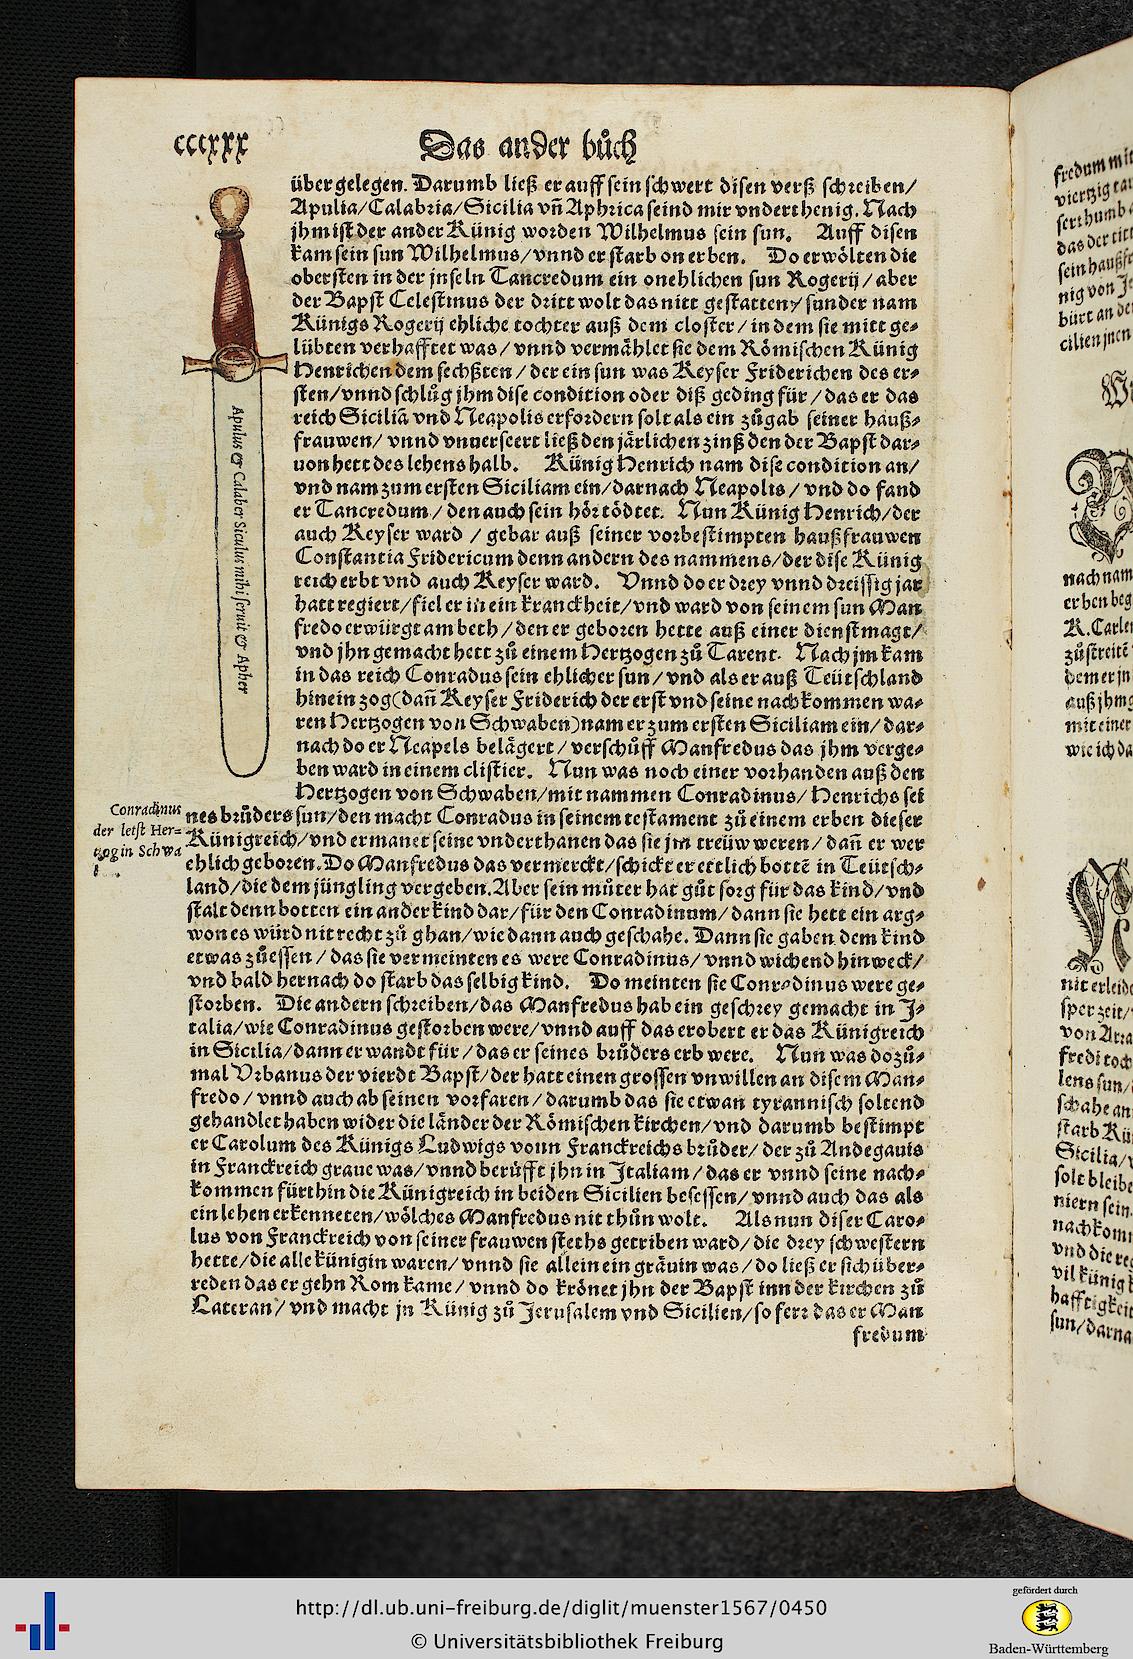 cccxxx
Das ander bůch
über gelegen. Darumb ließ er auff sein schwert disen verß schreiben/
Apulia/Calabria/Sicilia vñ Aphrica seind mir vnderthenig. Nach
jhm ist der ander Künig worden Wilhelmus sein sun. Auff disen
kam sein sun Wilhelmus/vnnd er starb on erben. Do erwölten die
obersten in der jnseln Tancredum ein onehlichen sun Rogerij/aber
der Bapst Celestinus der dritt wolt das nitt gestatten/ sunder nam
Künigs Rogerij ehliche tochter auß dem closter/in dem sie mitt ge⸗
lübten verhafftet was/vnnd vermählet sie dem Römischen Künig
Henrichen dem sechßten/der ein sun was Keyser Friderichen des er⸗
sten/vnnd schlůg jhm dise condition oder diß geding für/das er das
reich Siciliā vnd Neapolis erfordern solt als ein zůgab seiner hauß⸗
frauwen/vnnd vnuerseert ließ den järlichen zinß den der Bapst dar⸗
uon hett des lehens halb. Künig Henrich nam dise condition an/
vnd nam zum ersten Siciliam ein/darnach Neapolis/vnd do fand
er Tancredum/den auch sein hör tödtet. Nun Künig Henrich/der
auch Keyser ward/gebar auß seiner vorbestimpten haußfrauwen
Constantia Fridericum denn andern des nammens/der dise Künig
reich erbt vnd auch Keyser ward. Vnnd do er drey vnnd dreissig jar
hatt regiert/fiel er in ein kranckheit/vnd ward von seinem sun Man
fredo erwürgt am beth/den er geboren hette auß einer dienstmagt/
vnd jhn gemacht hett zů einem Hertzogen zů Tarent. Nach jm kam
in das reich Conradus sein ehlicher sun/vnd als er auß Teütschland
hinein zog(dañ Keyser Friderich der erst vnd seine nachkommen wa⸗
ren Hertzogen von Schwaben)nam er zum ersten Siciliam ein/dar⸗
nach do er Neapels belägert/verschůff Manfredus das jhm verge⸗
ben ward in einem clistier. Nun was noch einer vorhanden auß den
Hertzogen von Schwaben/mit nammen Conradinus/Henrichs sei
nes brůders sun/den macht Conradus in seinem testament zů einem erben dieser
Künigreich/vnd ermanet seine vnderthanen das sie jm treüw weren/dañ er wer
ehlich geboren. Do Manfredus das vermerckt/schickt er ettlich bottē in Teütsch⸗
land/die dem jüngling vergeben. Aber sein můter hat gůt sorg für das kind/vnd
stalt denn botten ein ander kind dar/für den Conradinum/dann sie hett ein arg⸗
won es würd nit recht zů ghan/wie dann auch geschahe. Dann sie gaben dem kind
etwas zů essen/das sie vermeinten es were Conradinus/vnnd wichend hinweck/
vnd bald hernach do starb das selbig kind. Do meinten sie Conradinus were ge⸗
storben. Die andern schreiben/das Manfredus hab ein geschrey gemacht in J⸗
talia/wie Conradinus gestorben were/vnnd auff das erobert er das Künigreich
in Sicilia/dann er wandt für/das er seines brůders erb were. Nun was dozů⸗
mal Vrbanus der vierdt Bapst/der hatt einen grossen vnwillen an disem Man⸗
fredo/vnnd auch ab seinen vorfaren/darumb das sie etwan tyrannisch soltend
gehandlet haben wider die länder der Römischen kirchen/vnd darumb bestimpt
er Carolum des Künigs Ludwigs vonn Franckreichs brůder/der zů Andegauis
in Franckreich graue was/vnnd berůfft jhn in Jtaliam/das er vnnd seine nach⸗
kommen fürthin die Künigreich in beiden Sicilien besessen/vnnd auch das als
ein lehen erkenneten/wölches Manfredus nit thůn wolt. Als nun diser Caro⸗
lus von Franckreich von seiner frauwen steths getriben ward/die drey schwestern
hette/die alle künigin waren/vnnd sie allein ein gräuin was/do ließ er sich über⸗
reden das er gehn Rom kame/vnnd do krönet jhn der Bapst inn der kirchen zů
Lateran/vnd macht jn Künig zů Jerusalem vnd Sicilien/so ferr das er Man
fredum
Apulus & Calaber Siculus mihi seruit & Apher
Conradinus
der letst Her=
tzog in Schwa
fredum mit
das der
nig von
cilien jnen
nach nam
er ben beg
K. Carle
zů streitē
dem er jn
auß jhm
mit einer
wie ich da
nit erleid
sper zeit/
von Arra
fredi toch
lens sun/
schahe an
starb Kü
Sicilia/
solt bleibe
niern sein
nachkom
vnd die re
vil künig
hafftigkeit
sun/darna
http://dl.ub.uni-freiburg.de/diglit/muenster1567/0450
© Universitätsbibliothek Freiburg
gefördert durch
Baden-Württemberg